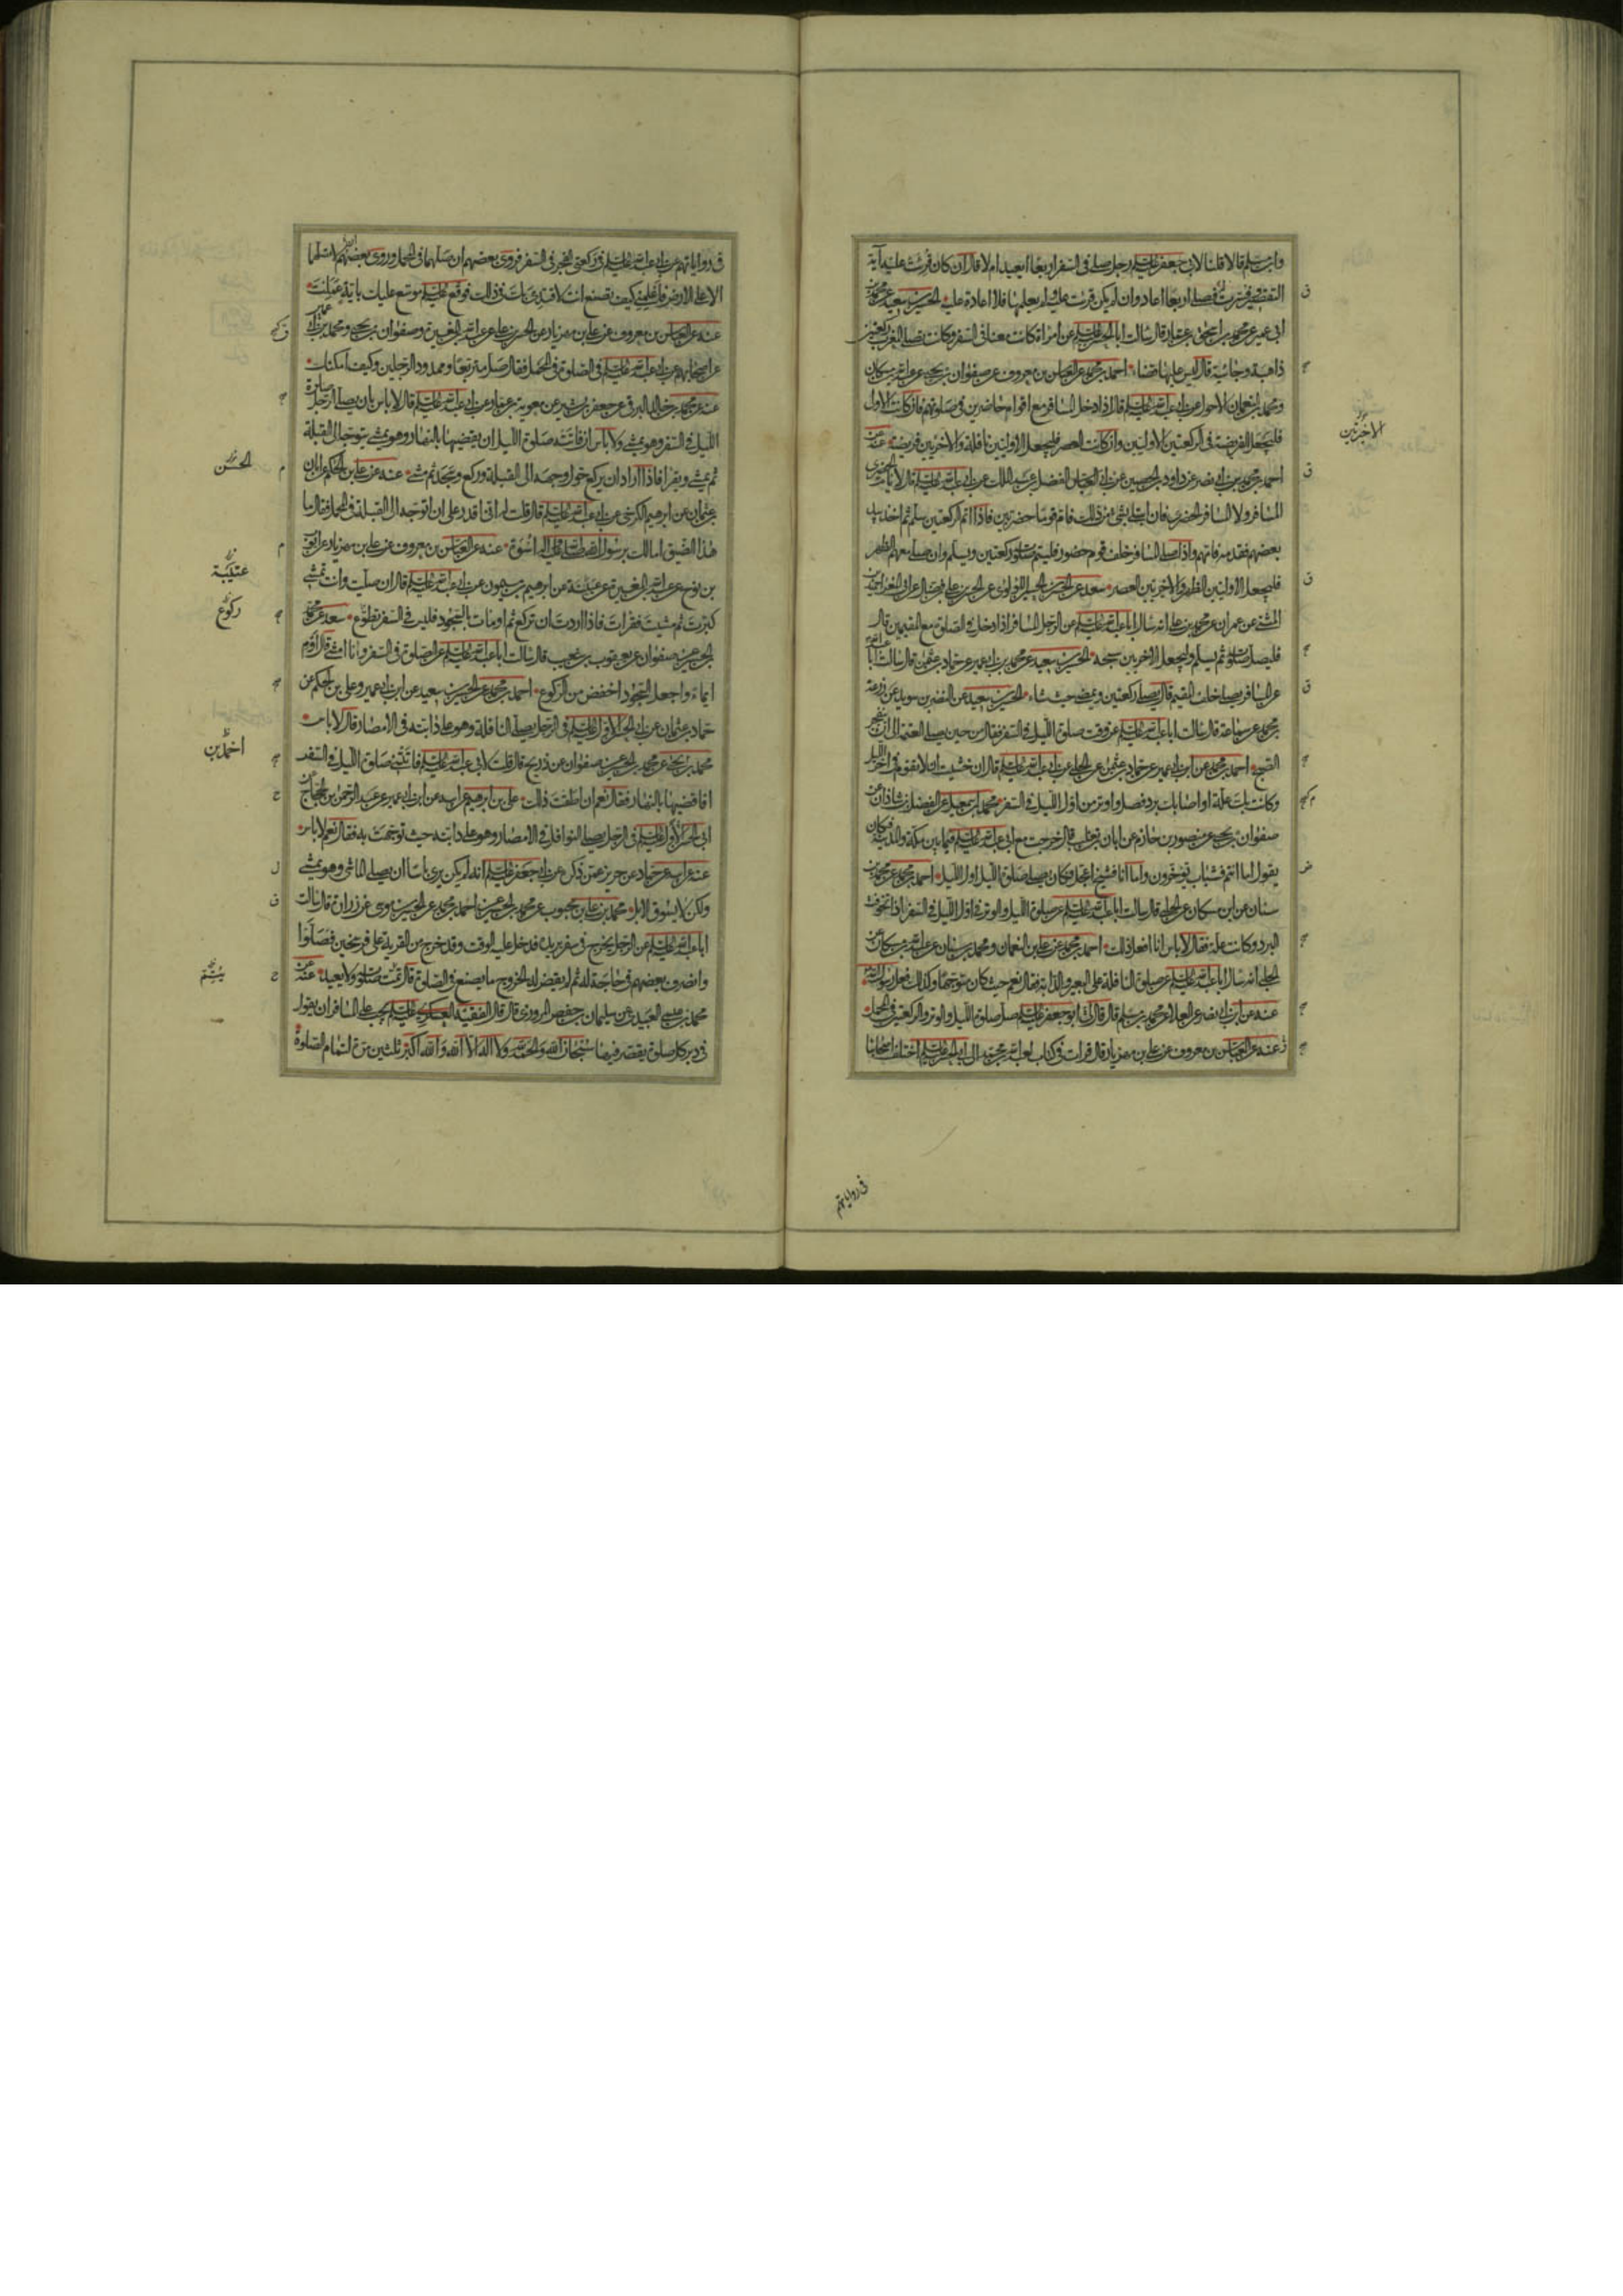 وابن مسلم قالا قلنا لابي جعفر عليه السلم رجل صلى في السفر اربعا ايعيد ام لا قال ان كان قرئت عليه آية
التقصير وفسرت له فصلى اربعا اعاد وان لم يكن قرئت عليه ولم يعلمها فلا اعادة عليه الحسين بن سعيد عن محمد بن
ابي عمير عن محمد بن اسحق بن عمار قال سالت ابا الحسن عليه السلم عن امراة كانت معنا في السفر وكانت تصلي المغرب ركعتين
ذاهبة وجائية قال ليس عليها قضاء احمد بن محمد عن العباس بن معروف عن صفوان بن يحيى عن عبد الله بن مسكان
ومحمد بن النعمان الاحول عن ابي عبد الله عليه السلم قال اذا دخل المسافر مع اقوام حاضرين في صلوتهم فان كانت الاولى
فليجعل الفريضة في الركعتين الاولتين وان كانت العصر فليجعل الاولتين نافلة والاخرتين فريضة عنه عن
احمد بن محمد بن ابي نصر عن داود بن الحصين عن ابي العباس الفضل بن عبد الملك عن ابي عبد الله عليه السلم قال لا يام الحضري
المسافر ولا المسافر الحضري فان ابتلي بشيء من ذلك فام قوما حضريين فاذا اتم الركعتين سلم ثم اخذ بيد
بعضهم فقدمه فامهم واذا صلى المسافر خلف قوم حضور فليتم صلوته ركعتين ويسلم وان صلى معهم الظهر
فليجعل الاولتين الظهر والاخيرتين العصر سعد عن الحسن
المثنى عن عمران عن محمد بن علي انه سال ابا عبد الله عليه السلم عن الرجل المسافر اذا دخل في الصلوة مع المقيمين قال
فليصل صلوته ثم يسلم وليجعل الاخرتين سبحة الحسين بن سعيد عن محمد بن ابي عمير عن حماد بن عثمن قال سالت ابا
عن المسافر يصلي خلف المقيم قال يصلي ركعتين ويمضي حيث شاء الحسين بن سعيد عن النضر بن سويد عن زرعة
عن سماعة قال سالت ابا عبد الله عليه السلم عن وقت صلوة الليل في السفر فقال من حين يصلي العتمة الى ان ينفجر
الصبح احمد بن محمد عن ابن ابي عمير عن حماد بن عثمن عن الحلبي عن ابي عبد الله عليه السلم قال ان خشيت ان لا تقوم في اخر الليل
وكانت بك علة او اصابك برد فصل واوتر من اول الليل في السفر محمد بن اسمعيل عن الفضل بن شاذان عن
صفوان بن يحيى عن منصور بن حازم عن ابان بن تغلب قال خرجت مع ابي عبد الله عليه السلم فيما بين مكة والمدينة فكان
يقول اما انتم فشباب تؤخرون واما انا فشيخ اعجل فكان يصلي صلوة الليل اول الليل احمد بن محمد عن محمد بن
سنان عن ابن مسكان عن الحلبي قال سالت ابا عبد الله عليه السلم عن صلوة الليل والوتر في اول الليل في السفر اذا تخوفت
البرد وكانت علة فقال لا باس انا افعل ذلك احمد بن محمد عن علي بن النعمان ومحمد بن سنان عن عبد الله بن مسكان عن
الحلبي انه سال ابا عبد الله عليه السلم عن صلوة النافلة على البعير والدابة فقال نعم حيث كان متوجها وكذلك فعل رسول الله
عنه عن ابن ابي نصر عن العلا عن محمد بن مسلم قال قال لي ابو جعفر عليه السلم صل صلوة الليل والوتر والركعتين في المحمل
عنه عن العباس بن معروف عن علي بن مهزيار قال قرات في كتاب لعبد الله بن محمد الى ابي الحسن عليه السلم اختلف اصحابنا
الاخرتين
في رواياتهم
في رواياتهم عن ابي عبد الله عليه السلم في ركعتي الفجر في السفر فروى بعضهم ان صلهما في المحمل وروى بعضهم ان لا تصلهما
الا على الارض فاعلمني كيف تصنع انت لاقتدي بك في ذلك فوقع عليه السلم موسع عليك باية عملت
عنه عن العباس بن معروف عن علي بن مهزيار عن الحسن بن علي عن عبد الله بن المغيرة وصفوان بن يحيى ومحمد بن ابي عمير
عن اصحابهم عن ابي عبد الله عليه السلم في الصلوة في المحمل فقال صل متربعا وممدود الرجلين وكيف امكنك
عنه عن محمد بن خالد البرقي عن جعفر بن بشير عن معوية بن عمار عن ابي عبد الله عليه السلم قال لا باس بان يصلي الرجل صلوة
الليل في السفر وهو يمشي ولا باس ان فاتته صلوة الليل ان يقضيها بالنهار وهو يمشي يتوجه الى القبلة
ثم يمشي ويقرا فاذا اراد ان يركع حول وجهه الى القبلة وركع وسجد ثم مشى عنه عن علي بن الحكم عن ابان
بن عثمان عن ابراهيم الكرخي عن ابي عبد الله عليه السلم قال قلت له اني اقدر على ان اتوجه الى القبلة في المحمل فقال ما
هذا الضيق اما لك برسول الله صلى الله عليه واله اسوة عنه عن العباس بن معروف عن علي بن مهزيار عن ايوب
بن نوح عن عبد الله بن المغيرة عن عيينة عن ابراهيم بن ميمون عن ابي عبد الله عليه السلم قال ان صليت وانت تمشي
كبرت ثم مشيت فقرات فاذا اردت ان تركع ثم اومات بالسجود فليس في السفر تطوع سعد عن محمد بن
الحسين عن صفوان عن يعقوب بن شعيب قال سالت ابا عبد الله عليه السلم عن الصلوة في السفر وانا امشي قال اوم
ايماء واجعل السجود اخفض من الركوع احمد بن محمد عن الحسين بن سعيد عن ابن ابي عمير وعلي بن الحكم عن
حماد بن عثمان عن ابي الحسن الاول عليه السلم في الرجل يصلي النافلة وهو على دابته في الامصار قال لا باس
محمد بن يحيى عن محمد بن الحسين عن صفوان عن ذريح قال قلت لابي عبد الله عليه السلم فاتتني صلوة الليل في السفر
افاقضيها بالنهار فقال نعم ان اطقت ذلك علي بن ابراهيم عن ابيه عن ابن ابي عمير عن عبد الرحمن بن الحجاج عن
ابي الحسن الاول عليه السلم في الرجل يصلي النوافل في الامصار وهو على دابته حيث توجهت به فقال نعم لا باس
عنه عن ابيه عن حماد عن حريز عمن ذكره عن ابي جعفر عليه السلم انه لم يكن يرى باسا ان يصلي الماشي وهو يمشي
ولكن لا يسوق الابل محمد بن علي بن محبوب عن محمد بن الحسين عن احمد بن محمد عن الحسين بن موسى عن زرارة قال سالت
ابا عبد الله عليه السلم عن الرجل يخرج في سفر يريده فدخل عليه الوقت وقد خرج من القرية على فرسخين فصلوا
وانصرف بعضهم في حاجة له ثم لم يقض له الخروج ما يصنع في الصلوة قال تمت صلوته ولا يعيد عنه عن
محمد بن عيسى العبيدي عن سليمان بن حفص المروزي قال قال الفقيه العسكري عليه السلم يجب على المسافر ان يقول
في دبر كل صلوة يقصر فيها سبحان الله والحمد لله ولا اله الا الله والله اكبر ثلثين مرة لتمام الصلوة
الحسن
عتيبة
ركوع
احمد بن
يتم